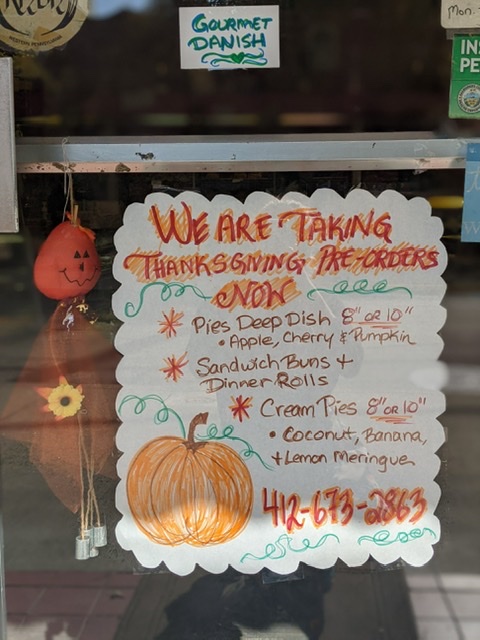 GOURMET
DANISH
WESTERN PENNSYLVANIA
Mon.
WE ARE TAKING
THANKSGIVING PRE-ORDERS
NOW
* PIES DEEP DISH 8" OR 10"
• APPLE, CHERRY & PUMPKIN
* SANDWICH BUNS +
DINNER ROLLS
* CREAM PIES 8" OR 10"
• COCONUT, BANANA,
+ LEMON MERINGUE
412-673-2863